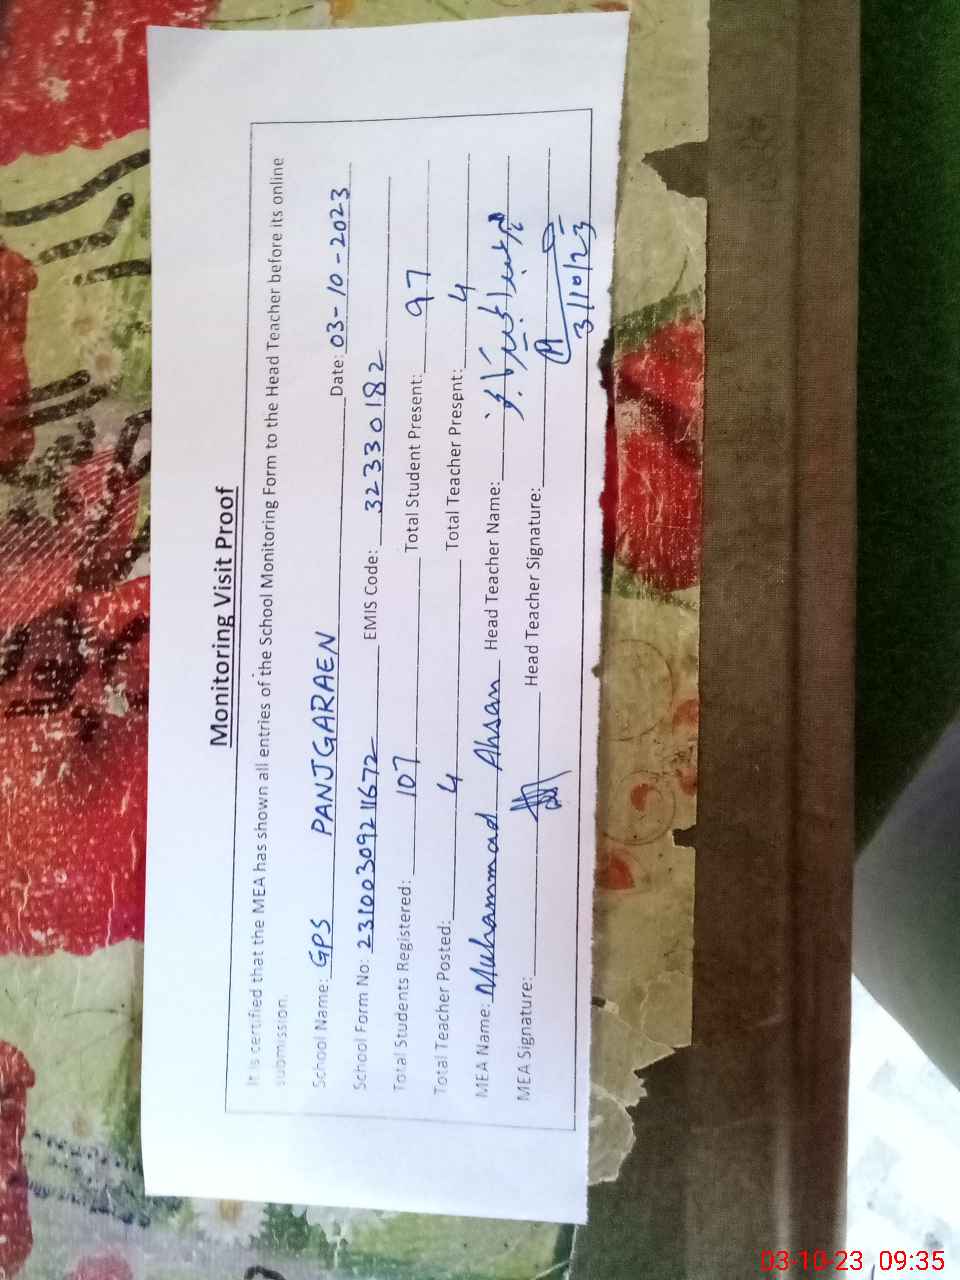 Monitoring Visit Proof
It is certified that the MEA has shown all entries of the School Monitoring Form to the Head Teacher before its online
submission.
School Name: GPS PANJGARAEN Date: 03-10-2023
School Form No: 23100309211672 EMIS Code: 32330182
Total Students Registered: 107 Total Student Present: 97
Total Teacher Posted: 4 Total Teacher Present: 4
MEA Name: Muhammad Ahsan Head Teacher Name:
MEA Signature: Head Teacher Signature:
3/10/23
03-10-23 09:35